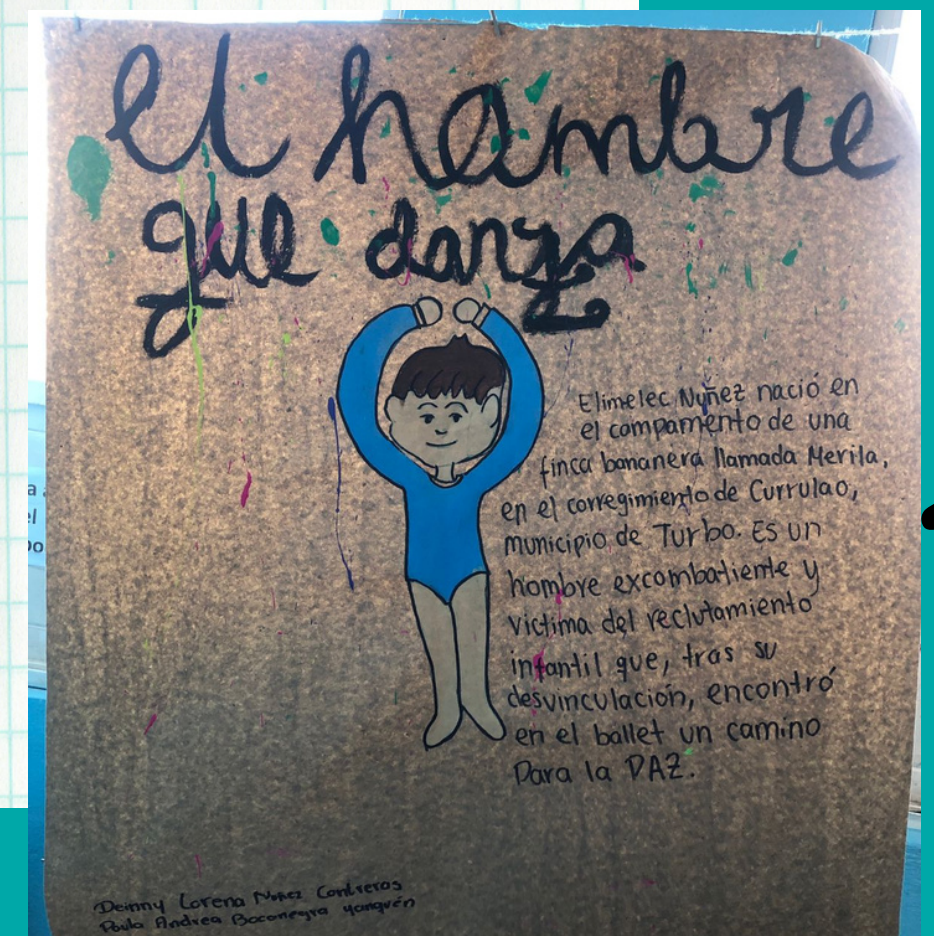 el hombre
que danza
Elimelec Nuñez nació en
el campamento de una
finca bananera llamada Merila,
en el corregimiento de Currulao,
municipio de Turbo. Es un
hombre excombatiente y
victima del reclutamiento
infantil que, tras su
desvinculación, encontró
en el ballet un camino
Para la PAZ.
Deinny Lorena Nuñez Contreras
Paula Andrea Boconegra yanquén
a
el